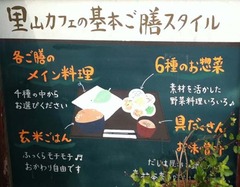 里山カフェの基本ご膳スタイル
各ご膳の
メイン料理
千種の中から
お選びください
6種のお惣菜
素材を活かした
野菜料理いろいろ♪
玄米ごはん
ふっくらモチモチ♬
おかわり自由です
具だくさん
お味噌汁